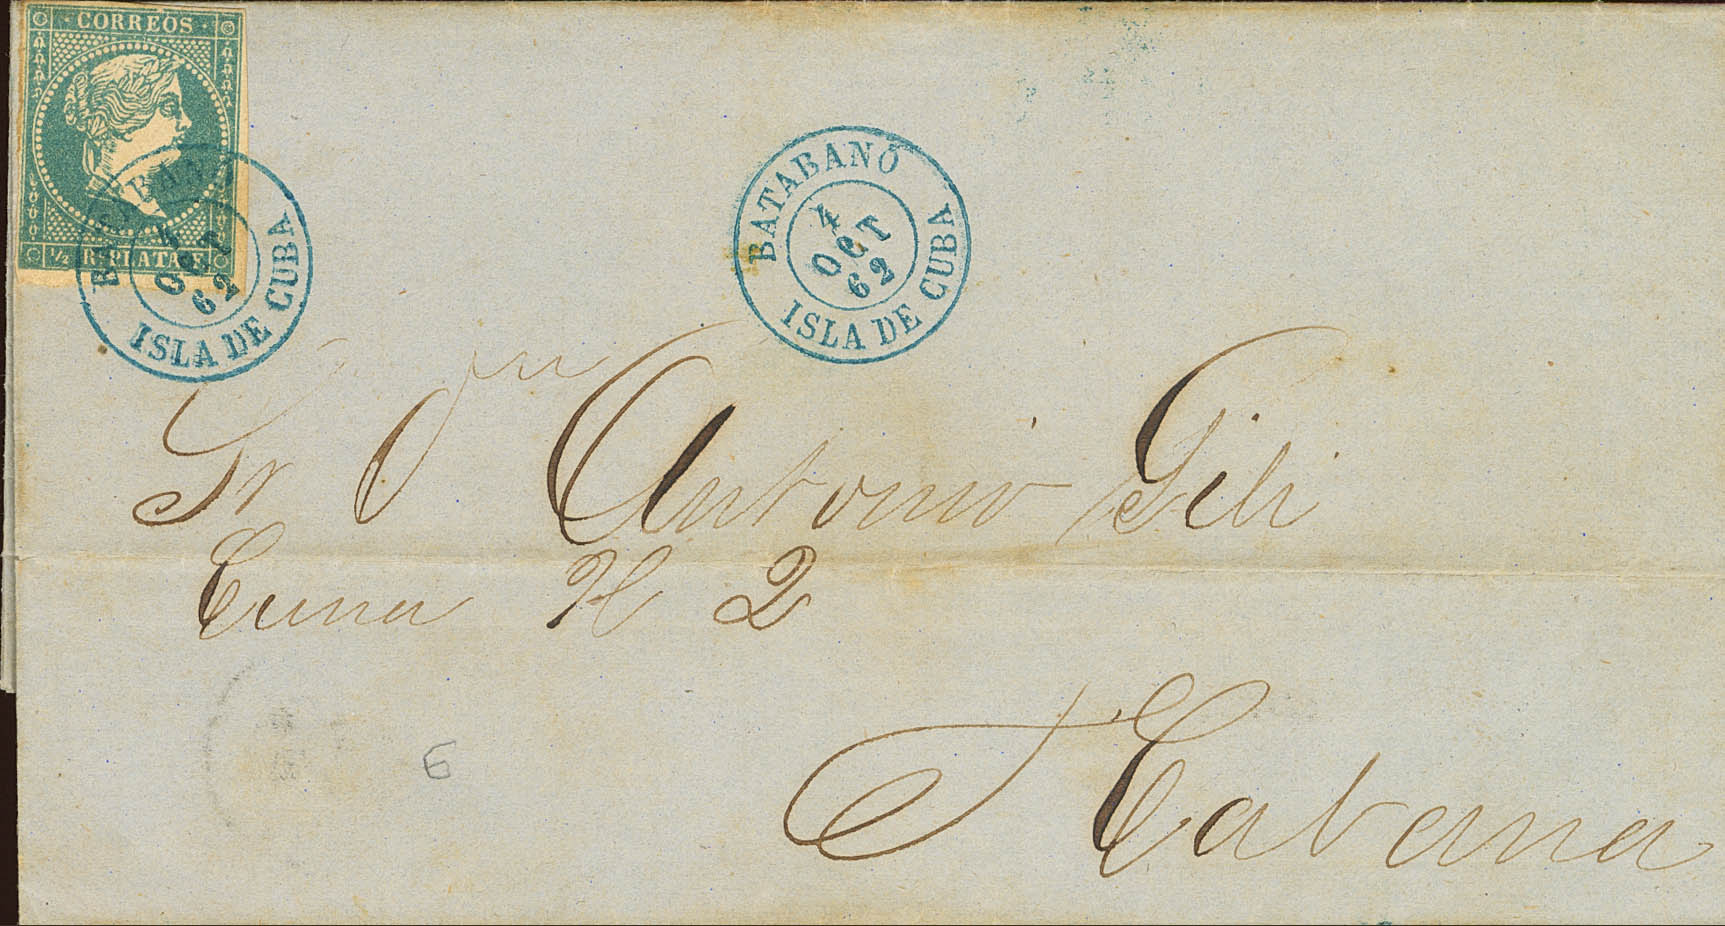 CORREOS
½ Rl. PLATA F.
BATABANÓ
4
OCT
62
ISLA DE CUBA
BATABANÓ
4
OCT
62
ISLA DE CUBA
Sr Dn Antonio Gili
Cuna N 2
Habana
6